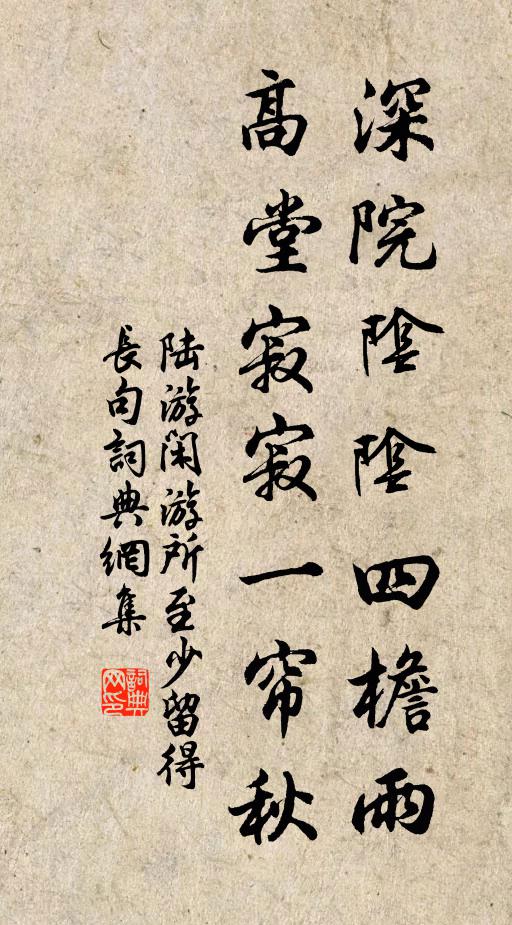 深院陰陰四檐雨
高堂寂寂一帘秋
陆游闲游所至少留得
長句詞典網集
詞典网印